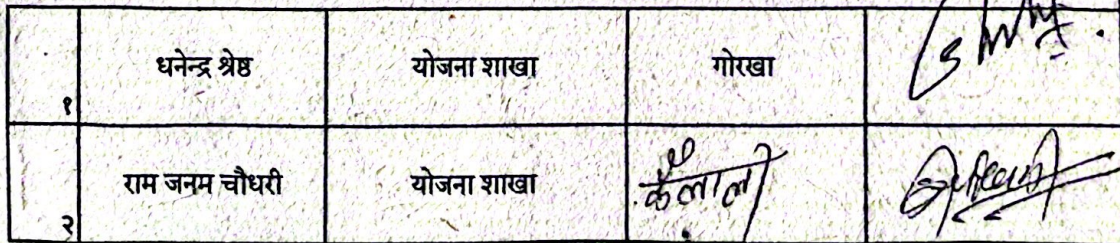 १ धनेन्द्र श्रेष्ठ योजना शाखा गोरखा
२ राम जनम चौधरी योजना शाखा कैलाली